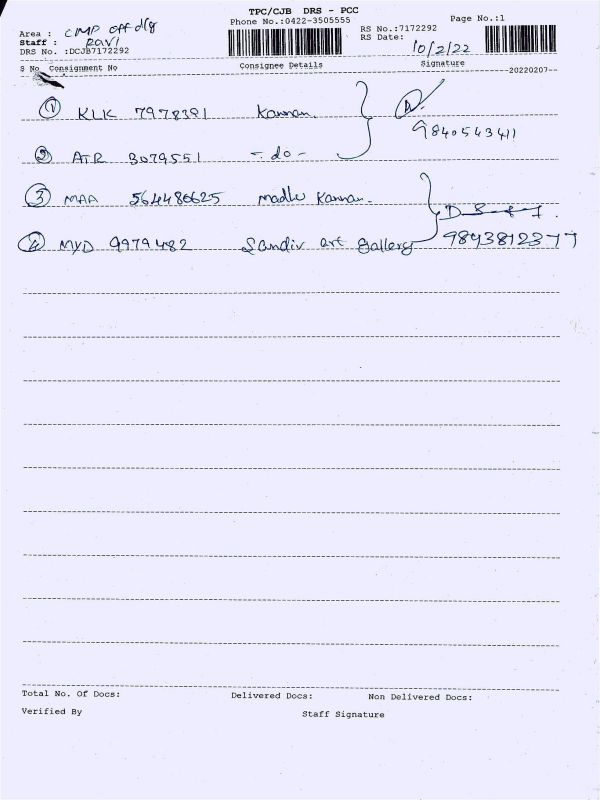 TPC/CJB DRS - PCC
Phone No.:0422-3505555
Page No.:1
Area : CMP off dlg
Staff : RAVI
DRS No. :DCJB7172292
RS No.:7172292
RS Date: 10/2/22
S No Consignment No Consignee Details Signature
20220207
1 KLK 7978391 Kannan.
9840543411
2 ATR 3079551 - do -
3 MAA 564480625 Madhu Kannan.
4 MYD 9979482 Sandiv art gallery 9843812377
Total No. Of Docs: Delivered Docs: Non Delivered Docs:
Verified By Staff Signature